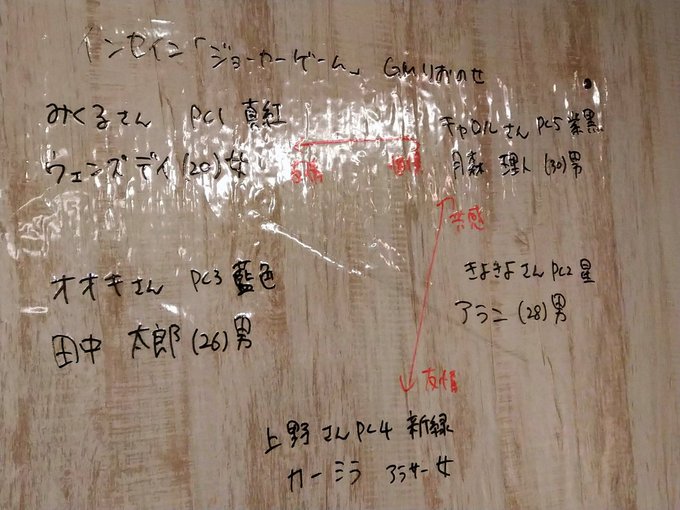 インセイン「ジョーカーゲーム」 GMりおのせ
みくるさん PC1 真紅
ウェンズデイ(20)女
キャロルさん PC5 紫黒
月森 理人(30)男
共感
オオキさん PC3 藍色
田中 太郎(26)男
きよきよさん PC2 星
アラン(28)男
友情
上野さん PC4 新緑
カーミラ アラサー女